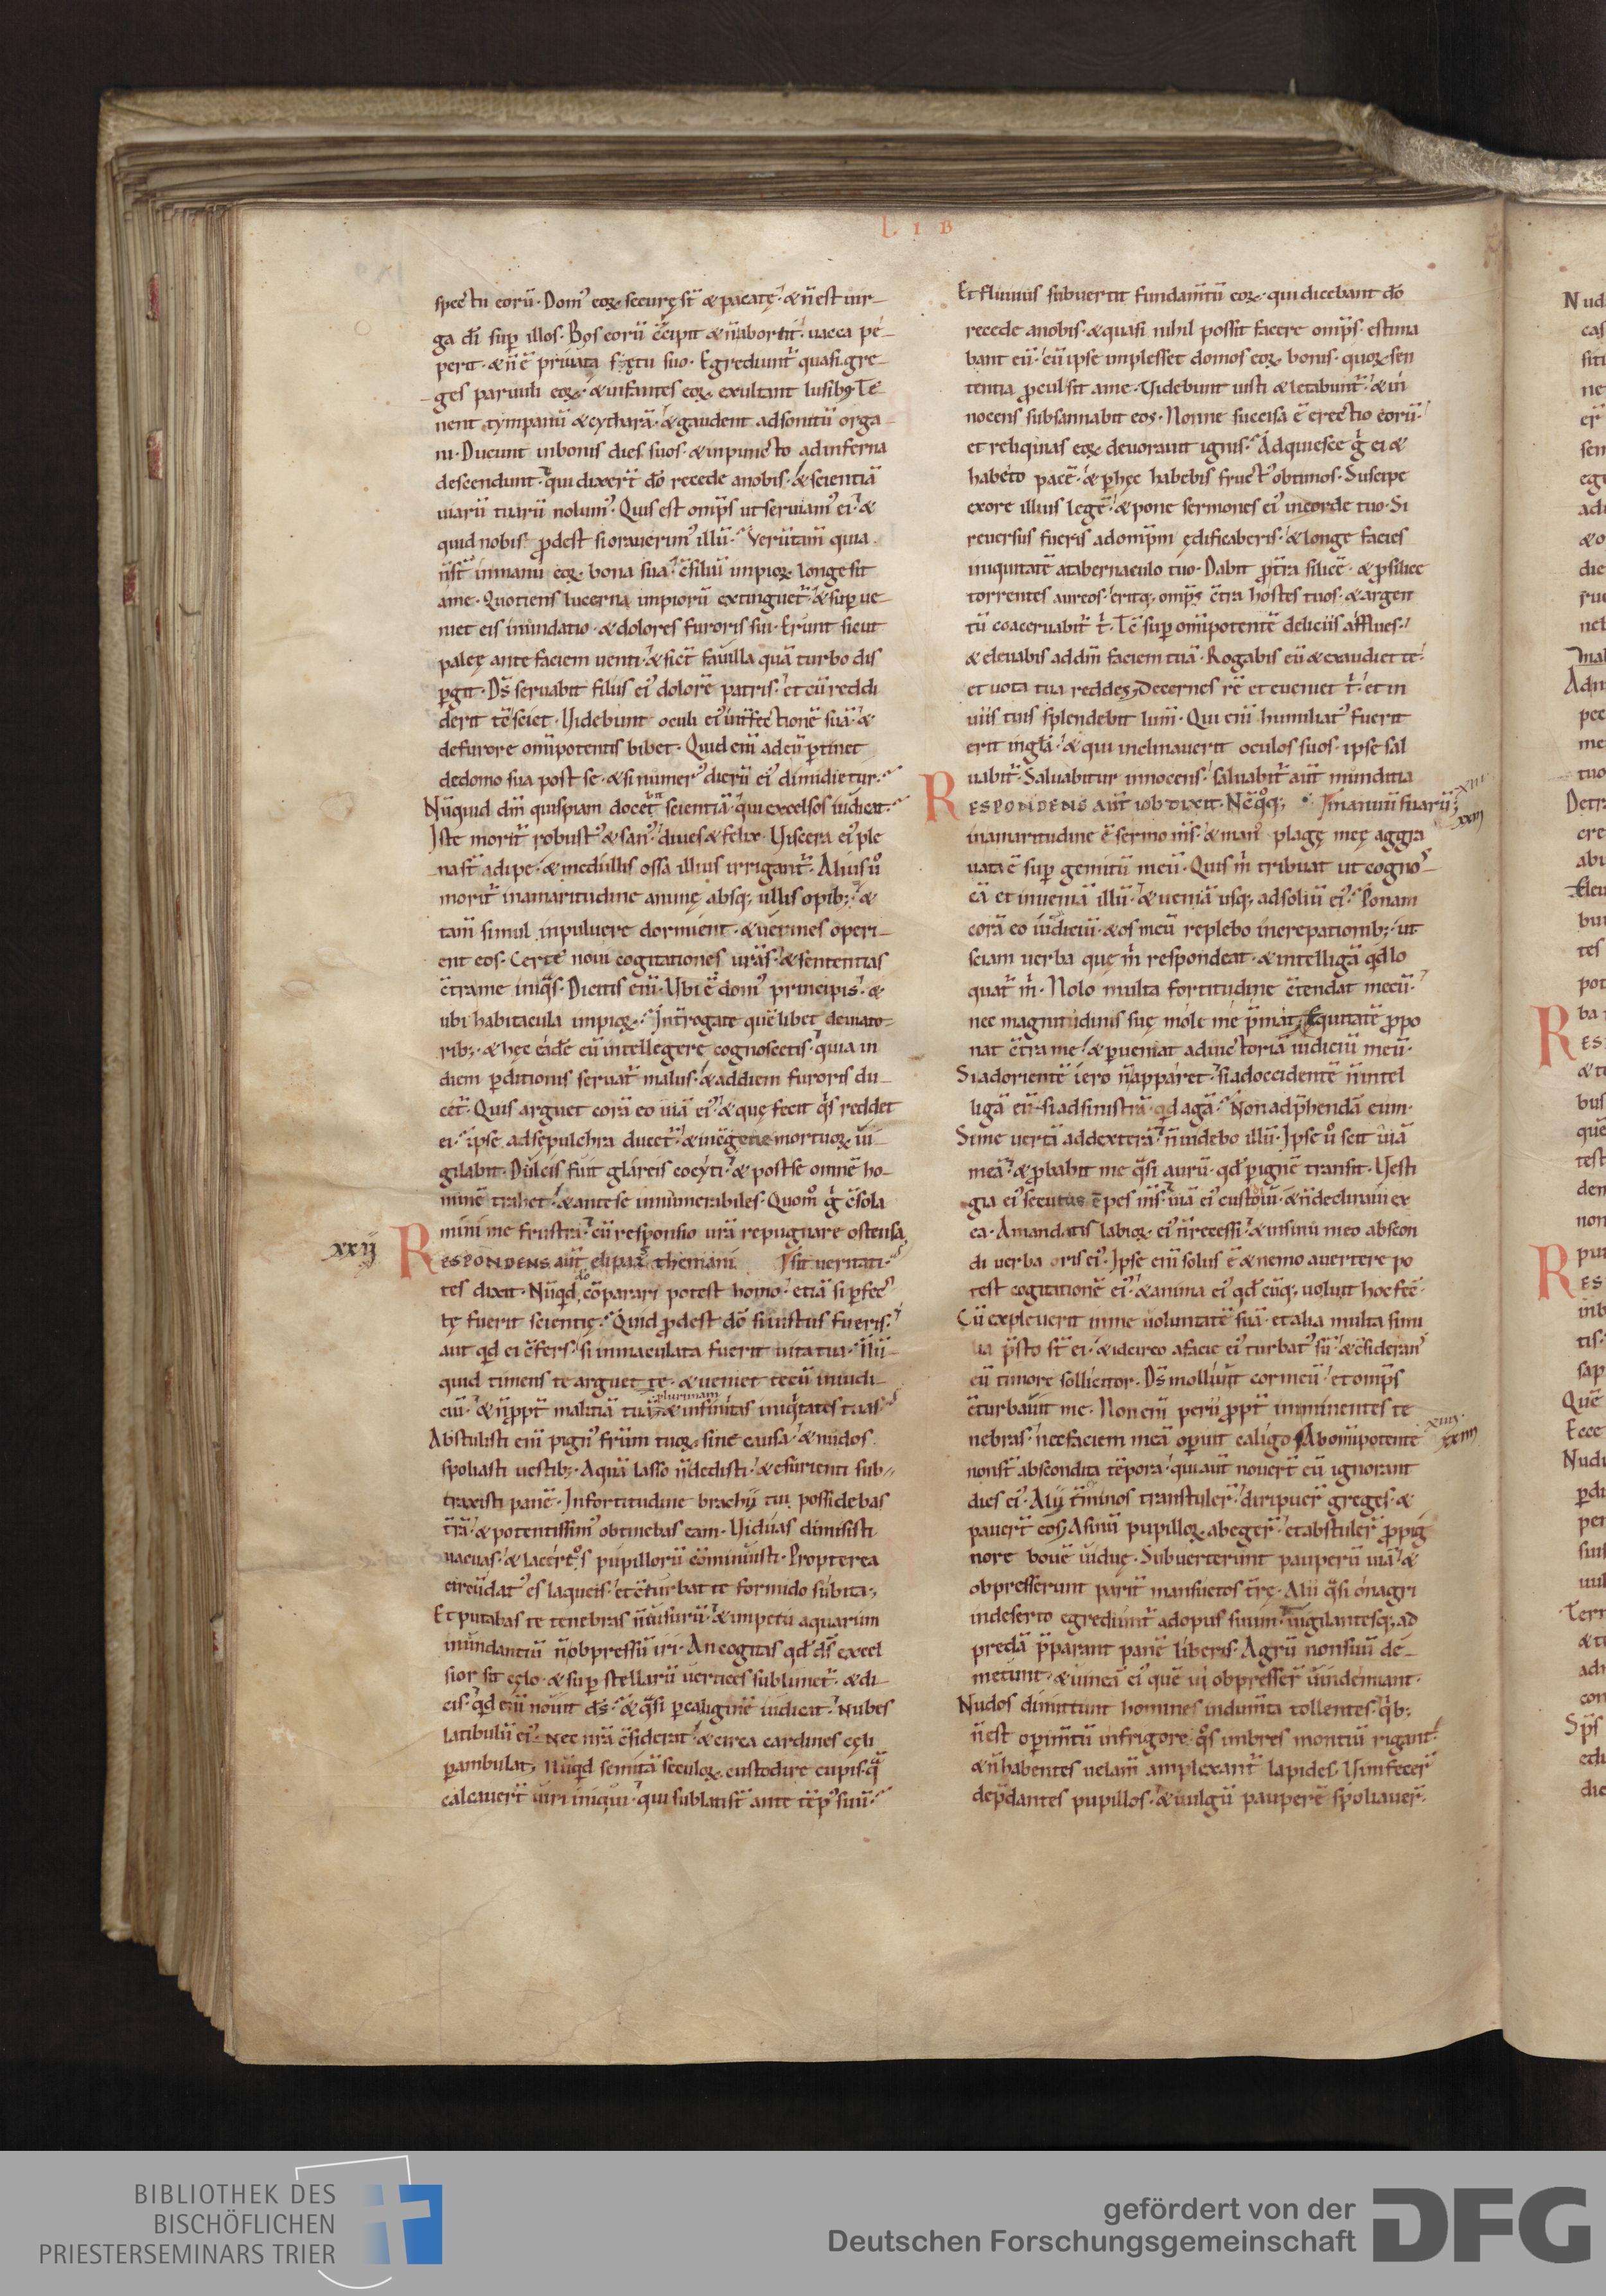 L I B
spectu eorū· Dom᾿ eoꝝ securę st̄ & pacatę· & n̄ est uir-
ga dī suꝑ illos· Bos eorū c̄cipit & n̄ abortit· uacca pe-
perit· & n̄ ē priuata fętu suo· Egrediunt᷑ quasi gre-
ges paruuli eoꝝ· & infantes eoꝝ exultant lusib; Te-
nent tympanū & cytharā· & gaudent ad sonitū orga-
ni· Ducunt in bonis dies suos· & in puncto ad inferna
descendunt· qui dixer̄t dō recede a nobis· & scientiā
uiarū tuarū nolum᾿· Quis est omp̄s ut seruiam᾿ ei· &
quid nobis ꝓdest si orauerim᾿ illū· Verūtam̄ quia
n̄ st̄ in manu eoꝝ bona sua· c̄siliū impioꝝ longe sit
a me· Quotiens lucerna impiorū extinguet᷑· & suꝑue-
niet eis inundatio· & dolores furoris sui· Erunt sicut
paleę ante faciem uenti· & sic̄ fauilla quā turbo dis
ꝑgit· Ds̄ seruabit filiis ei᾿ dolorē patris· et cū reddi
derit t̄c sciet· Videbunt oculi ei᾿ int̄fectionē suā· &
de furore om̄ipotentis bibet· Quid eni᷑ ad eū ꝑtinet
de domo sua post se· & si numer᾿ dierū ei᾿ dimidietur·
Nūquid dm̄ quispiam docebit scientiā· qui excelsos iudicat·
Iste morit᷑ robust᾿ & san᾿· diues & felix· Viscera ei᾿ ple
na st̄ adipe· & medullis ossa illius irrigant᷑· Alius ů
morit᷑ in amaritudine animę absq; ullis opib;· &
tam̄ simul in puluere dormient· & uermes operi-
ent eos· Certe noui cogitationes urās· & sententias
c̄tra me iniq̄s· Dicitis eni᷑· Vbi ē dom᾿ principis· &
ubi habitacula impioꝝ· Int̄rogate quēlibet de uiato-
rib;· & hęc eadē eū intellegere cognoscetis· quia in
diem ꝑditionis seruat᷑ malus· & ad diem furoris du-
cet᷑· Quis arguet corā eo uiā ei᾿· & quę fecit q̄s reddet
ei· ipse ad sepulchra ducet᷑· & in c̄gerie mortuoꝝ ui-
gilabit· Dulcis fuit glareis cocyti· & post se omnē ho-
minē trahet· & ante se innumerabiles· Quom̊ ḡ c̄sola
mini me frustra· cū responsio urā repugnare ostensa
xxij
RESPONDENS aut̄ eliphaz themani sit ueritati·
tes dixit· Nūqd dō cōparari potest homo· etiā si ꝑfec-
tę fuerit scientię· Quid ꝓdest dō si iustus fueris·
aut qd ei c̄fers· si inmaculata fuerit uita tua· Nū-
quid timens te arguet te· & ueniet tecū in iudi-
ciū· & n̄ ꝓpt̄ malitiā tuā plurimam & infinitas iniq̄tates tuas·
Abstulisti eni᷑ pign᾿ frūm tuoꝝ sine causa· & nudos
spoliasti uestib;· Aquā lasso n̄ dedisti· & esurienti sub-
traxisti panē· In fortitudine brachij tui possidebas
t̄rā· & potentissim᾿ obtinebas eam· Viduas dimisisti
uacuas· & lacertos pupillorū cōminuisti· Propterea
circūdat᾿ es laqueis· et c̄turbat te formido subita·
Et putabas te tenebras n̄ uisurū· & impetu aquarum
inundantiū n̄ obpressū iri· An cogitas qd ds̄ excel
sior sit cęlo· & suꝑ stellarū uertices sublimet᷑· & di-
cis· qd eni᷑ nouit ds̄· & q̄si ꝑ caliginē iudicat· Nubes
latibulū ei᾿· nec nrā c̄siderat· & circa cardines cęli
ꝑambulat; Nūqd semitā seculoꝝ custodire cupis· q̄
calcauer̄t uiri iniqui· qui sublati st̄ ante tēp᾿ suū·
Et fluuius subuertit fundam̄tū eoꝝ· qui dicebant dō
recede a nobis· & quasi nihil possit facere omp̄s estima
bant eū· cū ipse implesset domos eoꝝ bonis· quoꝝ sen
tentia procul sit a me· Videbunt iusti & letabunt᷑· & in
nocens subsannabit eos· Nonne succisa ē erectio eorū·
et reliquias eoꝝ deuorauit ignis· Adquiesce ḡ ei &
habeto pacē· & ꝑ hęc habebis fruct᾿ obtimos· Suscipe
ex ore illius legē· & pone sermones ei᾿ in corde tuo· Si
reuersus fueris ad omp̄m ędificaberis· & longe facies
iniquitatē a tabernaculo tuo· Dabit ꝓ t̄ra silicē· & ꝓ silice
torrentes aureos· eritq; omp̄s c̄tra hostes tuos· & argen
tū coaceruabit᷑ t̄· Tc̄ suꝑ om̄ipotentē deliciis afflues·
& eleuabis ad dm̄ faciem tuā· Rogabis eū & exaudiet te·
et uota tua reddes; Decernes rē et eueniet t̄· et in
uiis tuis splendebit lum̄· Qui eni᷑ humiliat᾿ fuerit
erit in gl̄a· & qui inclinauerit oculos suos· ipse sal
uabit᷑· Saluabitur innocens· saluabit᷑ aut̄ munditia
RESPONDENS aut̄ iob dixit· Nc̄ qq; manuū suarū;
xxiij
in amaritudine ē sermo ms̄· & man᾿ plagę meę aggra
uata ē suꝑ gemitū meū· Quis m̄ tribuat ut cogno-
scā et inueniā illū· & ueniā usq; ad soliū ei᾿· Ponam
corā eo iudiciū· & os meū replebo increpationib;· ut
sciam uerba que m̄ respondeat· & intelligā qd lo
quat᷑ m̄· Nolo multa fortitudine c̄tendat mecū·
nec magnitudinis suę mole me p̄mat; Equitatē ꝓpo
nat c̄tra me· & ꝑueniat ad uictoriā iudiciū meū·
Si ad orientē iero n̄ apparet· si ad occidentē n̄ intel
ligā eū· si ad sinistrā qd agā· Non adp̄hendā eum·
Si me uertā ad dexterā· n̄ uidebo illū· Ipse ů scit uiā
meā· & ꝓbabit me q̄si aurū· qd ꝑ ignē transit· Vesti
gia ei᾿ secutus ē pes ms̄· uiā ei᾿ custodiui· & n̄ declinaui ex
ea· A mandatis labioꝝ ei᾿ n̄ recessi· & in sinu meo abscon
di uerba oris ei᾿· Ipse eni᷑ solus ē & nemo auertere po
test cogitationē ei᾿· & anima ei᾿ qd cūq; uoluit hoc fec̄·
Cū expleuerit in me uoluntatē suā· et alia multa simi
lia p̄sto st̄ ei· & idcirco a facie ei᾿ turbat᾿ sū· & c̄siderans
eū timore sollicitor· Ds̄ molliuit cor meū· et omp̄s
c̄turbauit me· Non eni᷑ perii ꝓpt̄ imminentes te
nebras· nec faciem meā oꝑuit caligo; Ab om̄ipotente
xxiiij
non st̄ abscondita tēpora· qui aut̄ nouer̄t eū ignorant
dies ei᾿· Alij t̄minos transtuler̄· diripuer̄ greges· &
pauer̄t eos; Asinū pupilloꝝ abeger̄· et abstuler̄ ꝓ pig
nore bouē uiduę· Subuerterunt pauperū uiā· &
obpresserunt parit̄ mansuetos t̄rę· Alii q̄si onagri
in deserto egrediunt᷑ ad opus suum· uigilantesq; ad
predā p̄parant panē liberis· Agrū non suū de-
metunt· & uineā ei᾿ quē ui obpresser̄ uindemiant·
Nudos dimittunt homines indum̄ta tollentes· q̄b;
n̄ est oꝑim̄tū in frigore· q̄s imbres montiū rigant·
& n̄ habentes uelam̄ amplexant᷑ lapides· Vim fecer̄
dep̄dantes pupillos· & uulgū pauperē spoliauer̄·
BIBLIOTHEK DES
BISCHÖFLICHEN
PRIESTERSEMINARS TRIER
gefördert von der
Deutschen Forschungsgemeinschaft
DFG